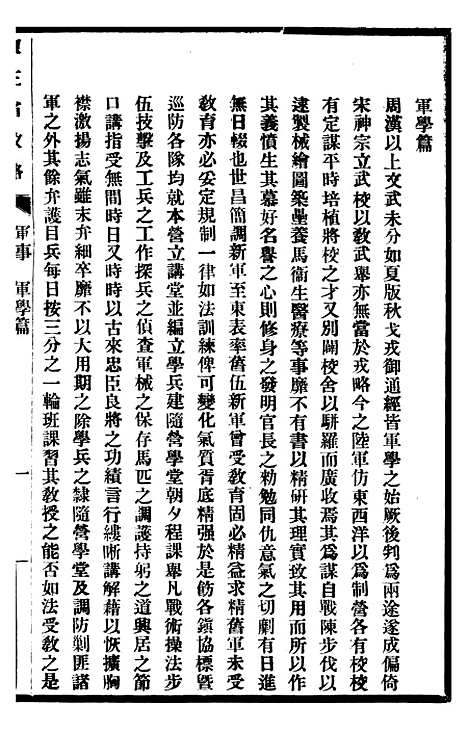 軍學篇
周漢以上文武未分如夏版秋戈戎御通經皆軍學之始厥後判爲兩途遂成偏倚
宋神宗立武校以敎武舉亦無當於戎略今之陸軍仿東西洋以爲制營各有校校
有定謀平時培植將校之才又別闢校舍以駢羅而廣收焉其爲謀自戰陳步伐以
逮製械繪圖築壘養馬衛生醫療等事靡不有書以精硏其理實致其用而所以作
其義憤生其慕好名譽之心則修身之發明官長之勑勉同仇意氣之切劘有日進
無日輟也世昌簡調新軍至東表率舊伍新軍曾受敎育固必精益求精舊軍未受
敎育亦必妥定規制一律如法訓練俾可變化氣質胥底精强於是飭各鎭協標曁
巡防各隊均就本營立講堂並編立學兵建隨營學堂朝夕程課舉凡戰術操法步
伍技擊及工兵之工作探兵之偵查軍械之保存馬匹之調護持躬之道興居之節
口講指受無間時日又時時以古來忠臣良將之功績言行縷晰講解藉以恢擴胸
襟激揚志氣雖末弁細卒靡不以大用期之除學兵之隸隨營學堂及調防剿匪諸
軍之外其餘弁護目兵每日按三分之一輪班課習其敎授之能否如法受敎之是
三省政略
軍事
軍學篇
一